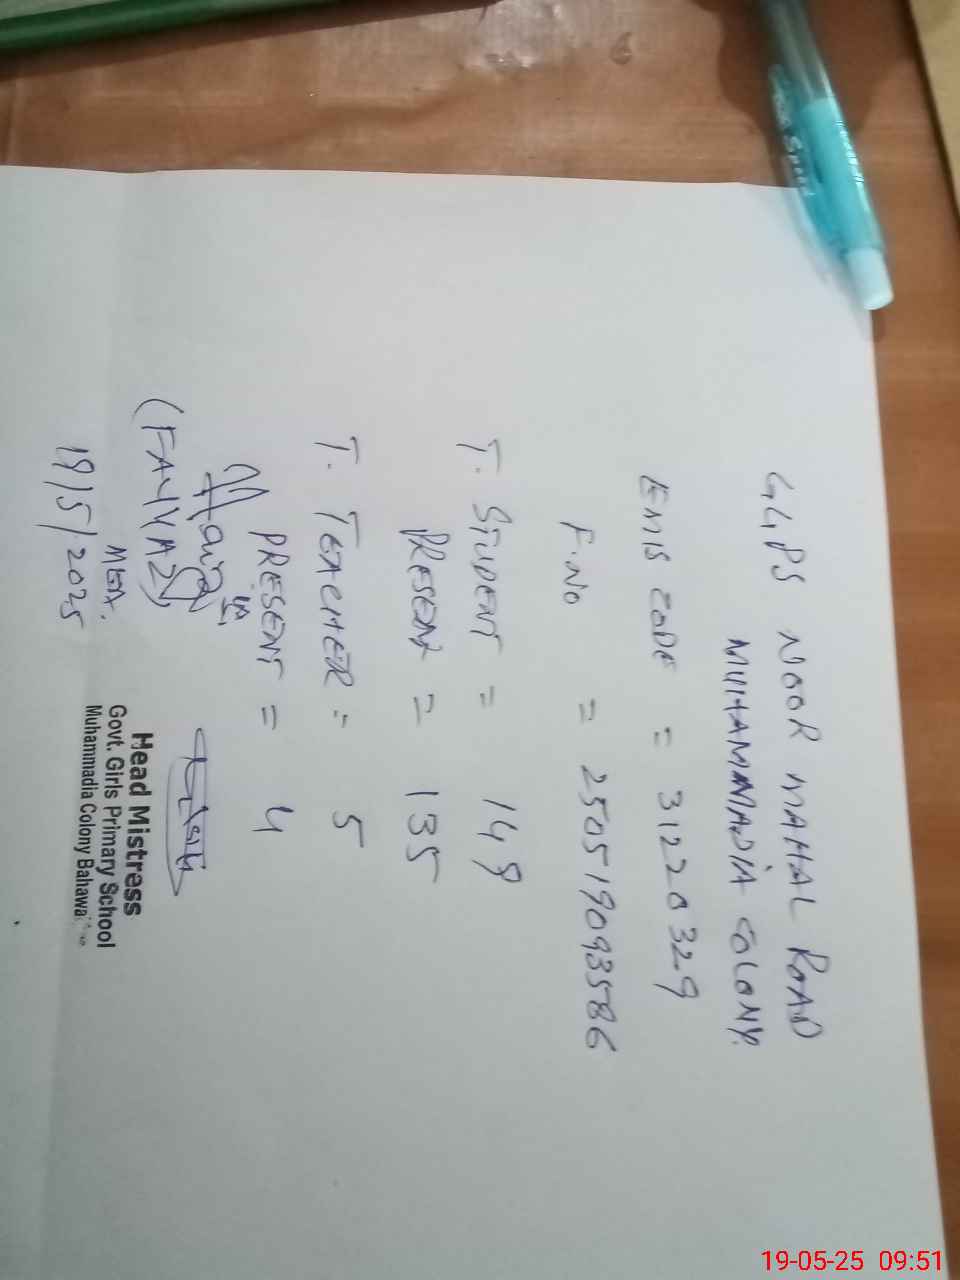 GGPS NOOR MAHAL ROAD
MUHAMMADIA COLONY.
EMIS CODE = 31220329
F.No = 250519093586
T. STUDENT = 149
PRESENT = 135
T. TEACHER = 5
PRESENT = 4
(FAYYAZ)
MEA.
19/5/2025
Head Mistress
Govt. Girls Primary School
Muhammadia Colony
19-05-25 09:51